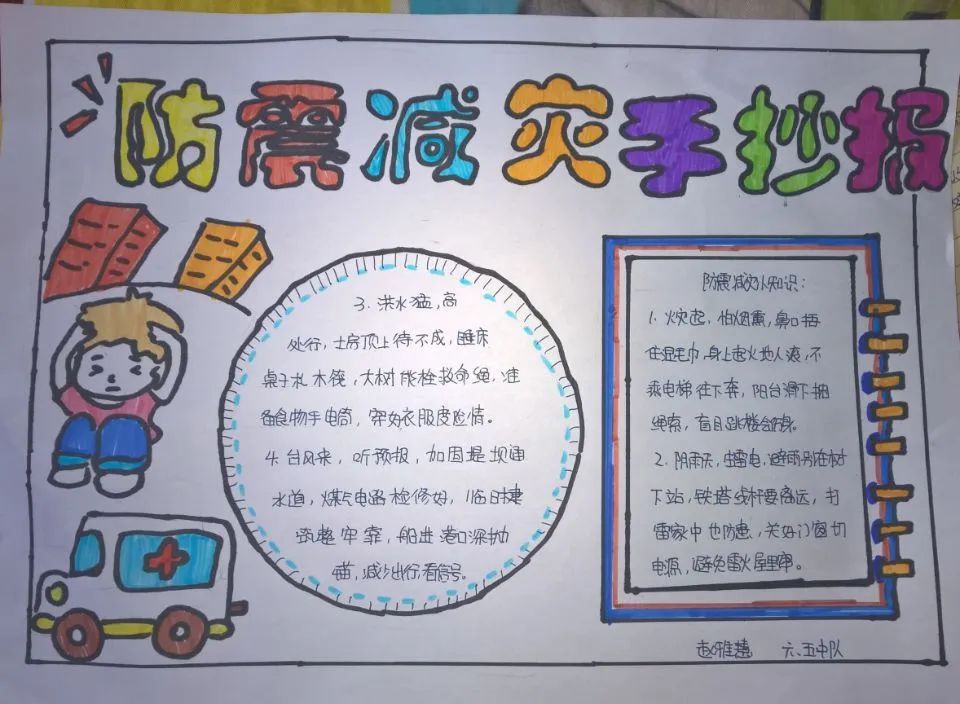 防震减灾手抄报
防震减灾小知识:
1. 火灾起,怕烟熏,鼻口捂
住湿毛巾,身上起火地上滚,不
乘电梯往下奔,阳台滑下捆
绳索,盲目跳楼会伤身。
2. 阴雨天,生雷电,避雨别在树
下站,铁塔线杆要离远,打
雷家中也防患,关好门窗切
电源,避免雷火屋里窜。
3. 洪水猛,高
处行,土房顶上待不成,睡床
桌子水木筏,大树能栓救命绳,准
备食物手电筒,穿好衣服度险情。
4. 台风来,听预报,加固堤坝通
水道,煤气电路检修好,临时建
筑整牢靠,船进港口深抛
锚,减少出行看信号。
赵雅慧 六、五中队